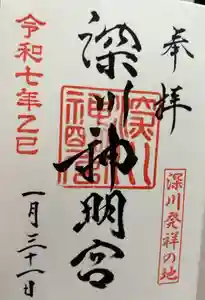 奉拝
深川神明宮
深川神明宮
深川発祥の地
令和七年乙巳
一月三十一日